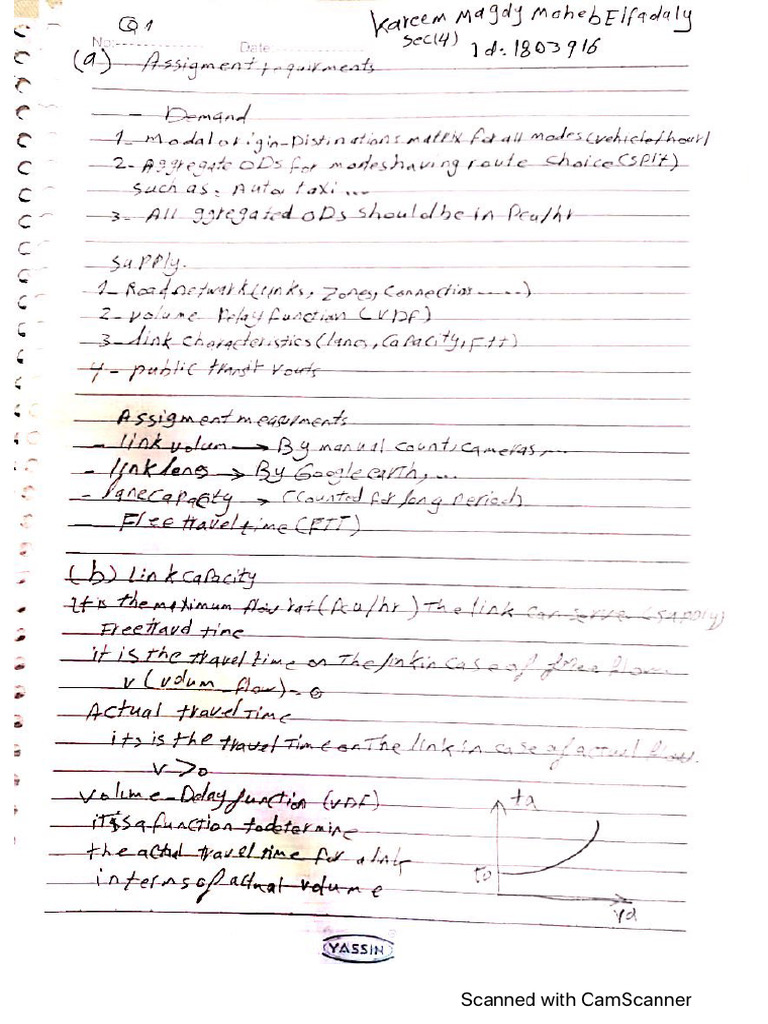 Q1
Kareem Magdy Moheb Elfadaly
No:
Date:
sec(4) Id: 1803916
(a) Assigment requirments
- Demand
1- Modal origin-Distinations matrix for all modes (vehicle/hour)
2- Aggregate ODs for modes having route choice (split)
such as: Auto, taxi ...
3- All ggregated ODs should be in Pcu/hr
supply.
1- Road network (links, Zones, Connection .....)
2- volume Delay function (VDF)
3- link characteristics (lanes, Capacity, Ftt)
4- public transit routs
Assigment measurments
- link volum → By manual count, cameras, ...
- link lens → By Google earth, ...
- lane capacity → Counted for long period
Free travel time (FTT)
(b) Link capacity
It is the maximum flow rat (Pcu/hr) The link can serve (supply)
Free travel time
it is the travel time on The link in case of free flow
v (volum flow) = 0
Actual travel Time
it is the travel Time on The link in case of actual flow.
v > 0
volume - Delay function (VDF)
it is a function to determine
the actual travel time for a link
in terms of actual volume
ta
to
va
YASSIN
Scanned with CamScanner